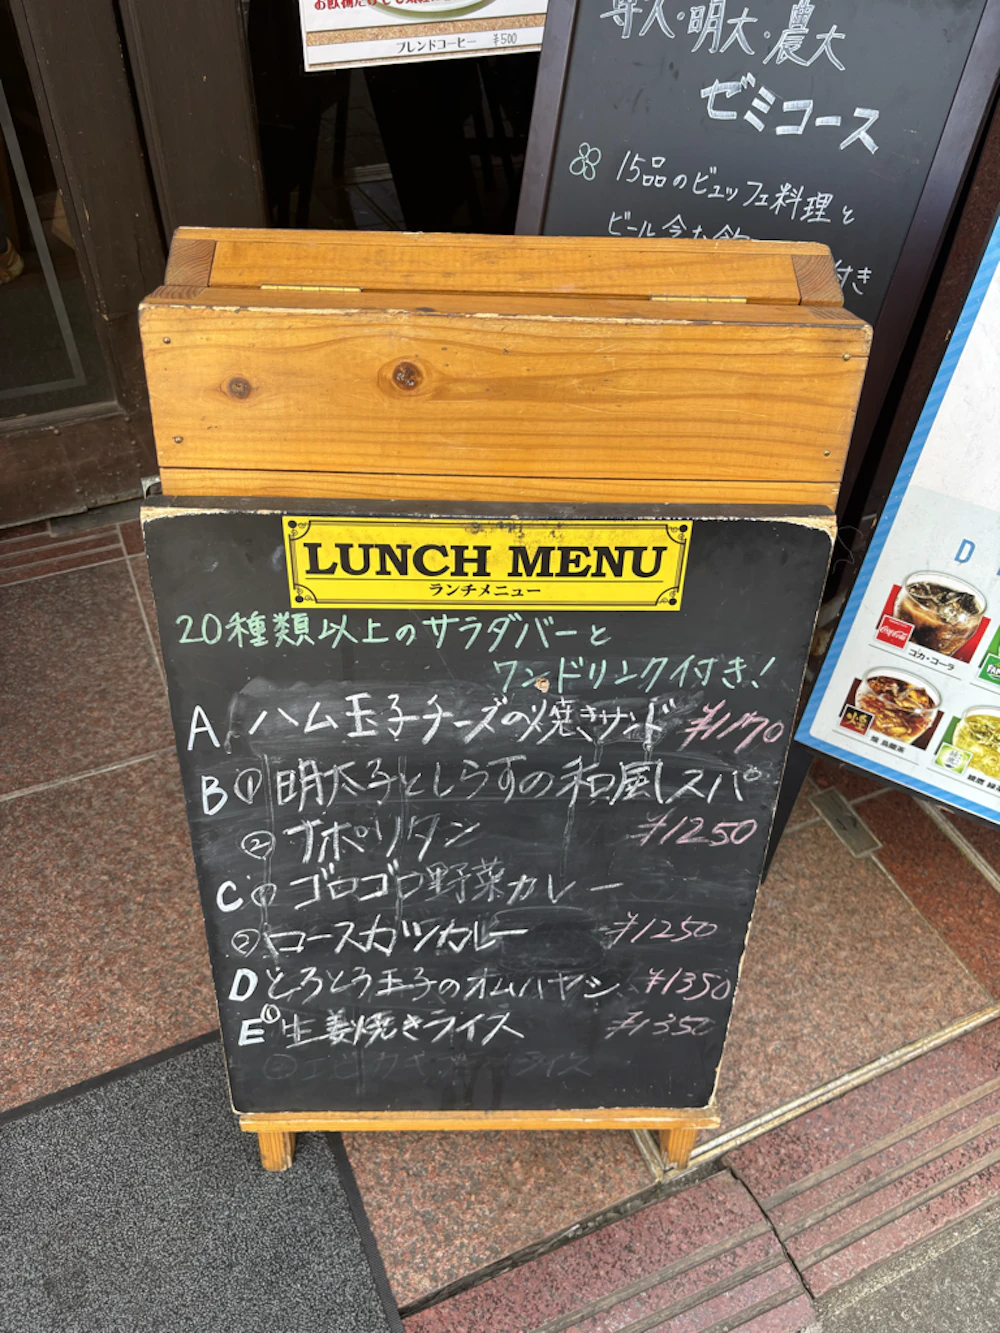 ブレンドコーヒー ¥500
専大・明大・農大
ゼミコース
15品のビュッフェ料理と
付き
LUNCH MENU
ランチメニュー
20種類以上のサラダバーと
ワンドリンク付き!
A ハム玉子チーズの焼きサンド ¥1170
B ① 明太子としらすの和風スパ
② ナポリタン ¥1250
C ① ゴロゴロ野菜カレー
② ロースカツカレー ¥1250
D とろとろ玉子のオムハヤシ ¥1350
E ① 生姜焼きライス ¥1350
D
Coca-Cola
コカ・コーラ
烏龍茶